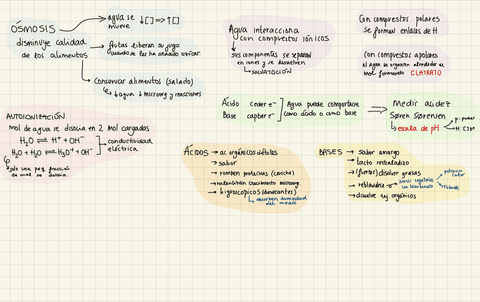 ÓSMOSIS
disminuye calidad
de los alimentos
agua se
mueve
↓[ ] => ↑[ ]
frutas liberan su jugo
cuando se les ha añadido azúcar
Conservar alimentos (salado)
↳ ↓agua ↓microorg y reacciones
Agua interacciona
con compuestos iónicos
sus componentes se separan
en iones y se disuelven
↳ SOLVATACIÓN
Con compuestos polares
se forman enlaces de H
Con compuestos apolares
el agua se organiza alrededor de
mol formando CLATRATO
Ácido ceder e-
Base captar e-
Agua puede comportarse
como ácido o como base
Medir acidez
Søren Sørensen
↳ escala de pH
p:
H:
AUTOIONIZACIÓN
mol de agua se disocia en 2 mol cargados
H2O ⇌ H+ + OH-
H2O + H2O ⇌ H3O+ + OH-
conductividad
eléctrica
sólo una peq fracción
de mol se disocia
ÁCIDOS → ac. orgánicos débiles
→ sabor
→ rompen proteínas
→ ralentizan crecimiento microorg
→ higroscópicos
↳ absorben humedad
del medio
BASES → sabor amargo
→ tacto resbaladizo
→ (fuertes) disolver grasas
→ reblandece
hervir vegetales
con bicarbonato
potencia
color
→ disuelve tej. orgánicos